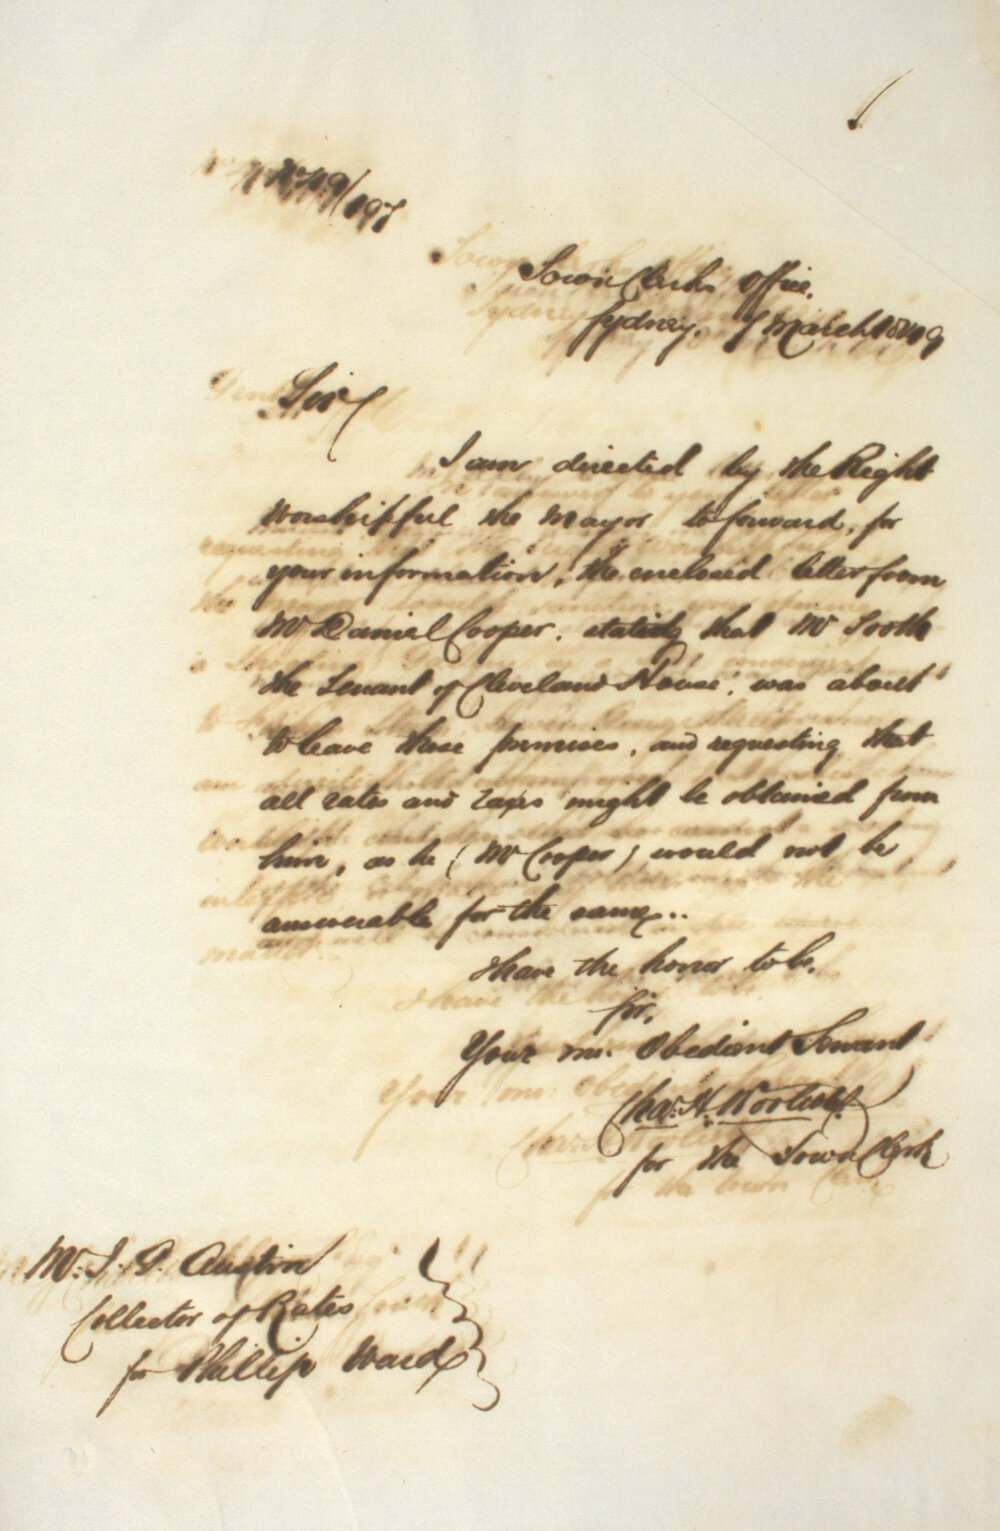 No 49/197
Town Clerks Office.
Sydney. 7 March 1849
Sir
I am directed by the Right
Worshipful the Mayor to forward, for
your information, the enclosed letter from
Mr Daniel Cooper. stating that Mr
the Tenant of Cleveland House, was about
to leave those premises, and requesting that
all rates and Taxes might be obtained from
him, as he (Mr Cooper) would not be
answerable for the same..
I have the honor to be,
Sir,
Your mo. Obedient Servant
Chas. H. Woolcott.
for the Town Clerk
Mr. J. P. Austin
Collector of Rates
for Phillip Ward